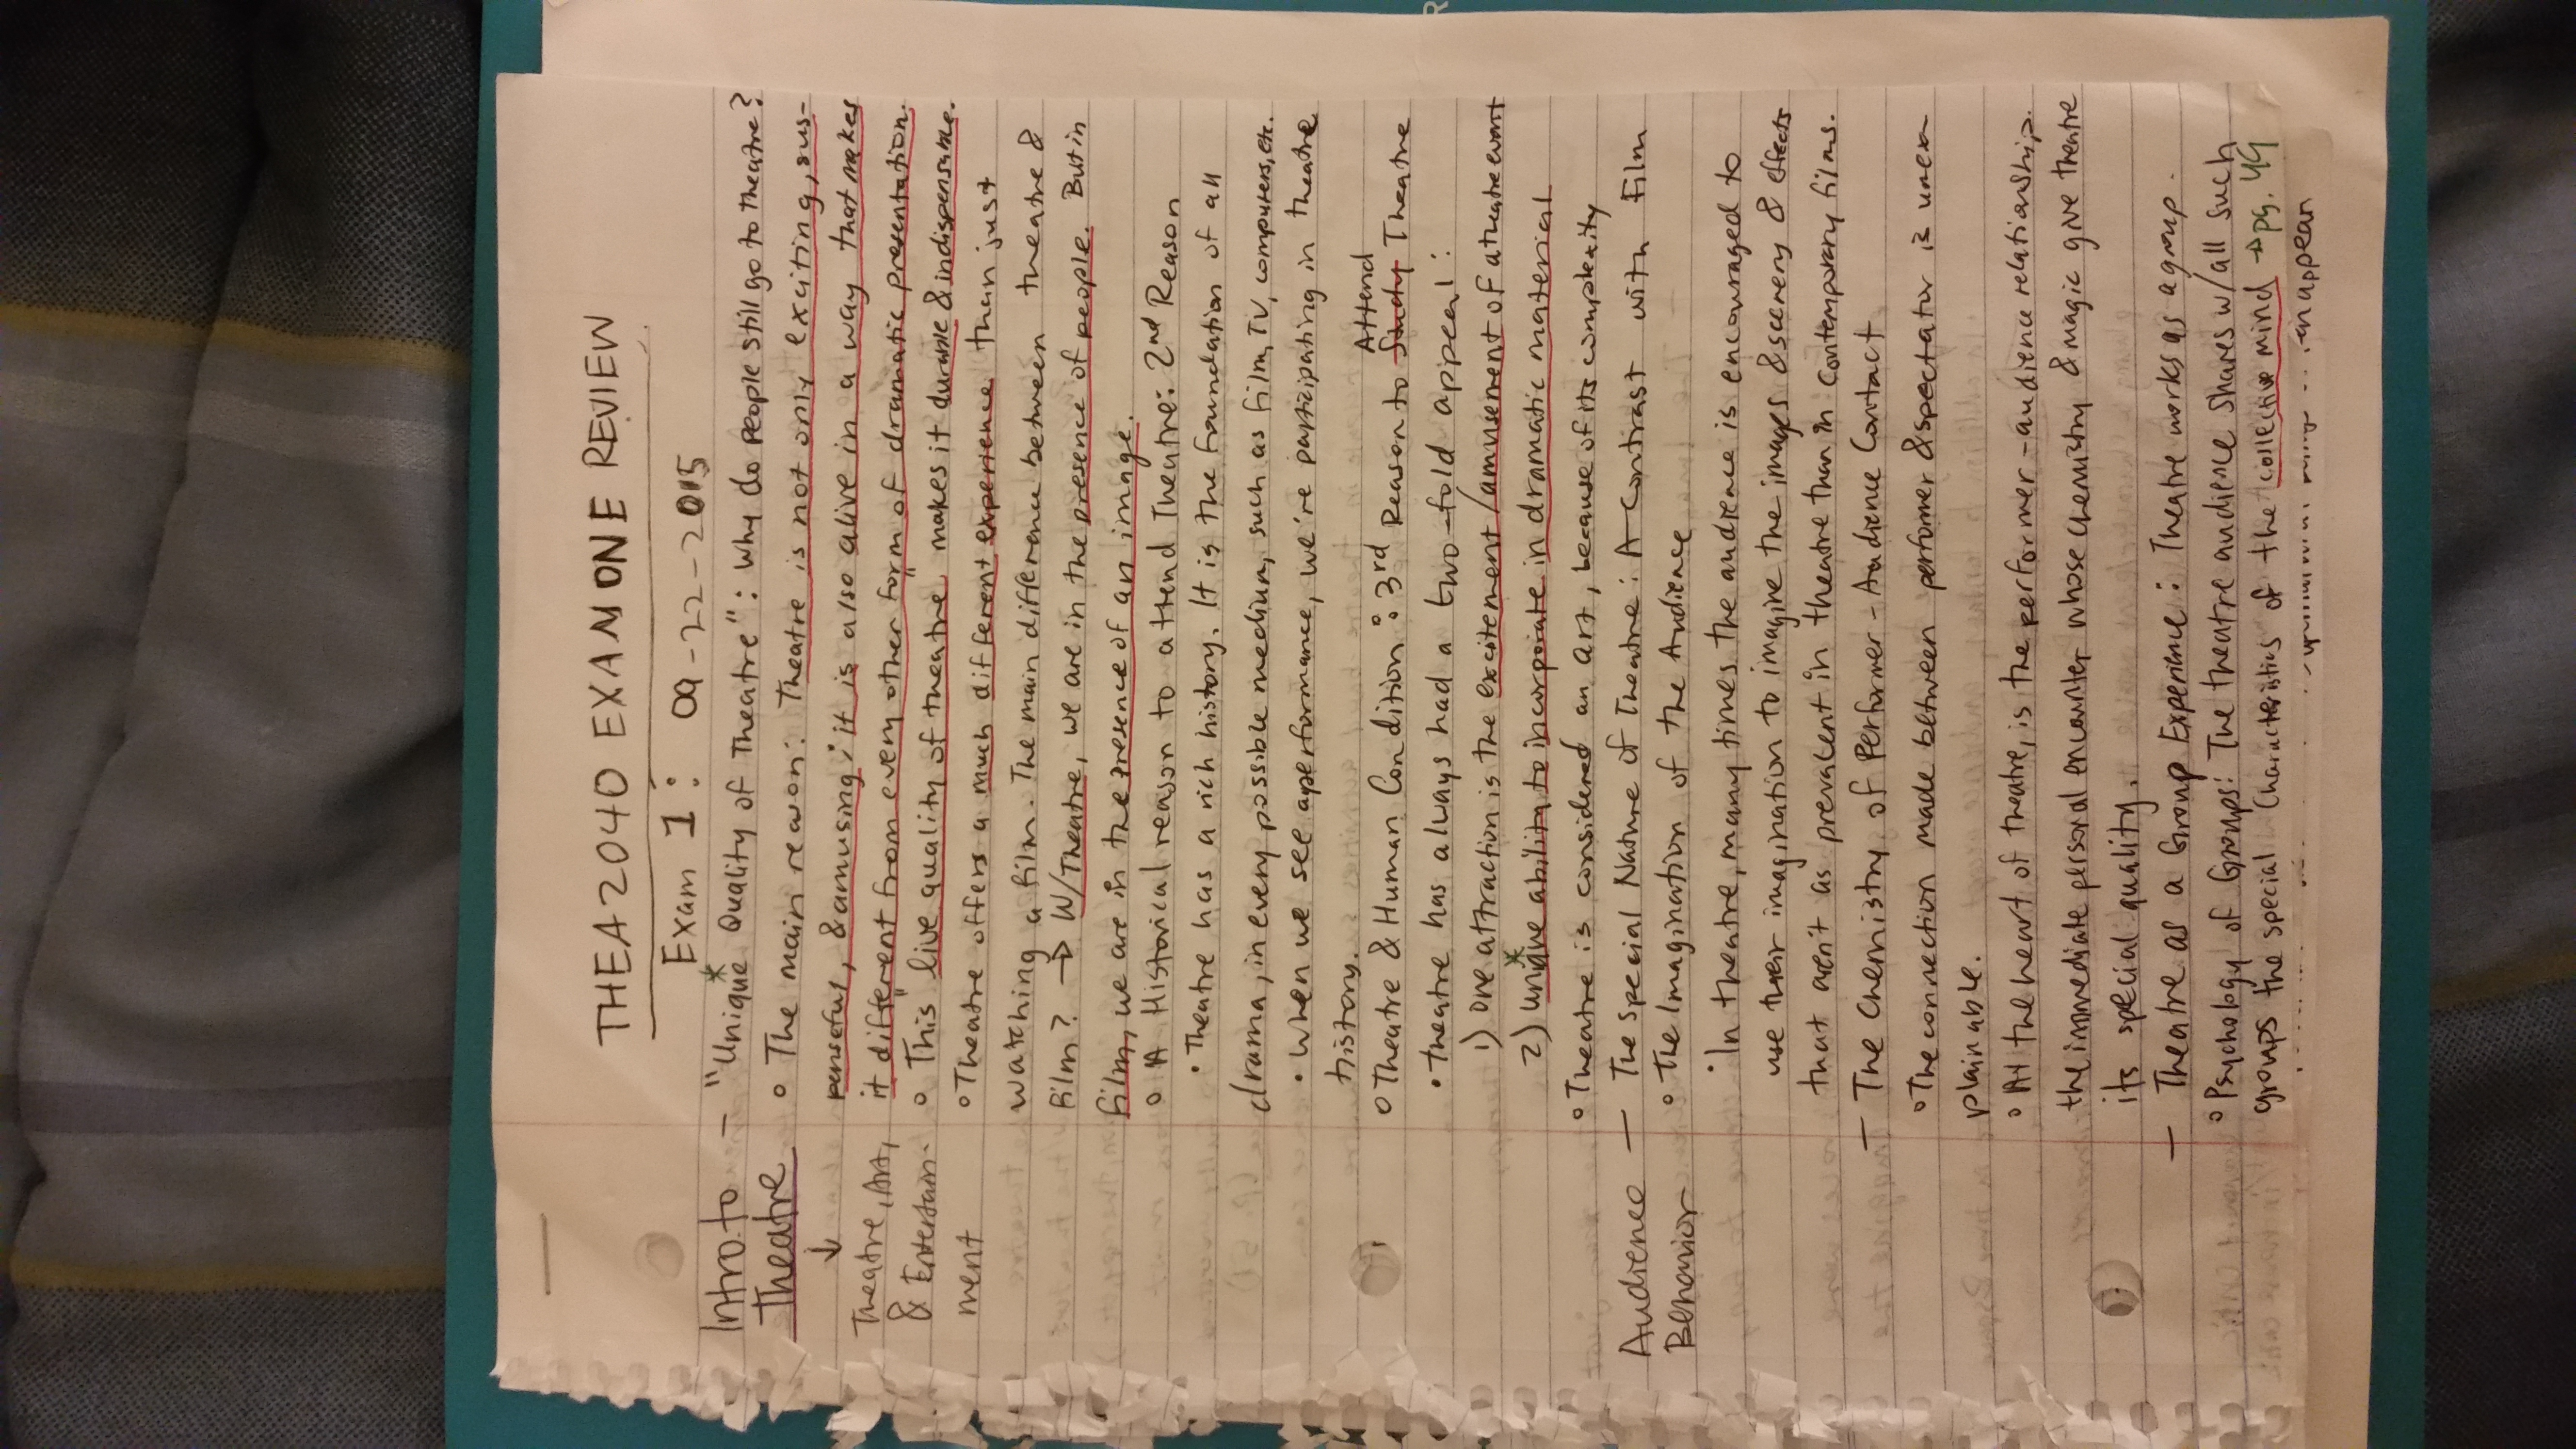 THEA 2040 EXAM ONE REVIEW
Exam 1: 09-22-2015
Intro to
Theatre
↓
Theatre, Art,
& Entertain-
ment
— "Unique Quality of Theatre": Why do people still go to theatre?
◦ The main reason: Theatre is not only exciting, sus-
penseful, & amusing; it is also alive in a way that makes
it different from every other form of dramatic presentation.
◦ This "live quality of theatre" makes it durable & indispensable.
◦ Theatre offers a much different experience than just
watching a film. The main difference between theatre &
film? → W/Theatre, we are in the presence of people. But in
film, we are in the presence of an image.
◦ A Historical reason to attend Theatre: 2nd Reason
• Theatre has a rich history. It is the foundation of all
drama, in every possible medium, such as film, TV, computers, etc.
• When we see a performance, we're participating in theatre
history.
Attend
◦ Theatre & Human Condition: 3rd Reason to Study Theatre
• Theatre has always had a two-fold appeal:
1) One attraction is the excitement/amusement of a theatre event
2) unique ability to incorporate in dramatic material
◦ Theatre is considered an art, because of its complexity
Audience
Behavior
— The Special Nature of Theatre: A Contrast with Film
◦ The Imagination of the Audience
• In theatre, many times the audience is encouraged to
use their imagination to imagine the images & scenery & effects
that aren't as prevalent in theatre than in contemporary films.
— The Chemistry of Performer-Audience Contact
◦ The connection made between performer & spectator is unex
plainable.
◦ At the heart of theatre, is the performer-audience relationship.
the immediate personal encounter whose chemistry & magic give theatre
its special quality.
— Theatre as a Group Experience: Theatre works as a group.
◦ Psychology of Groups: The theatre audience shares w/all such
groups the special characteristics of the collective mind → pg. 49
an appear